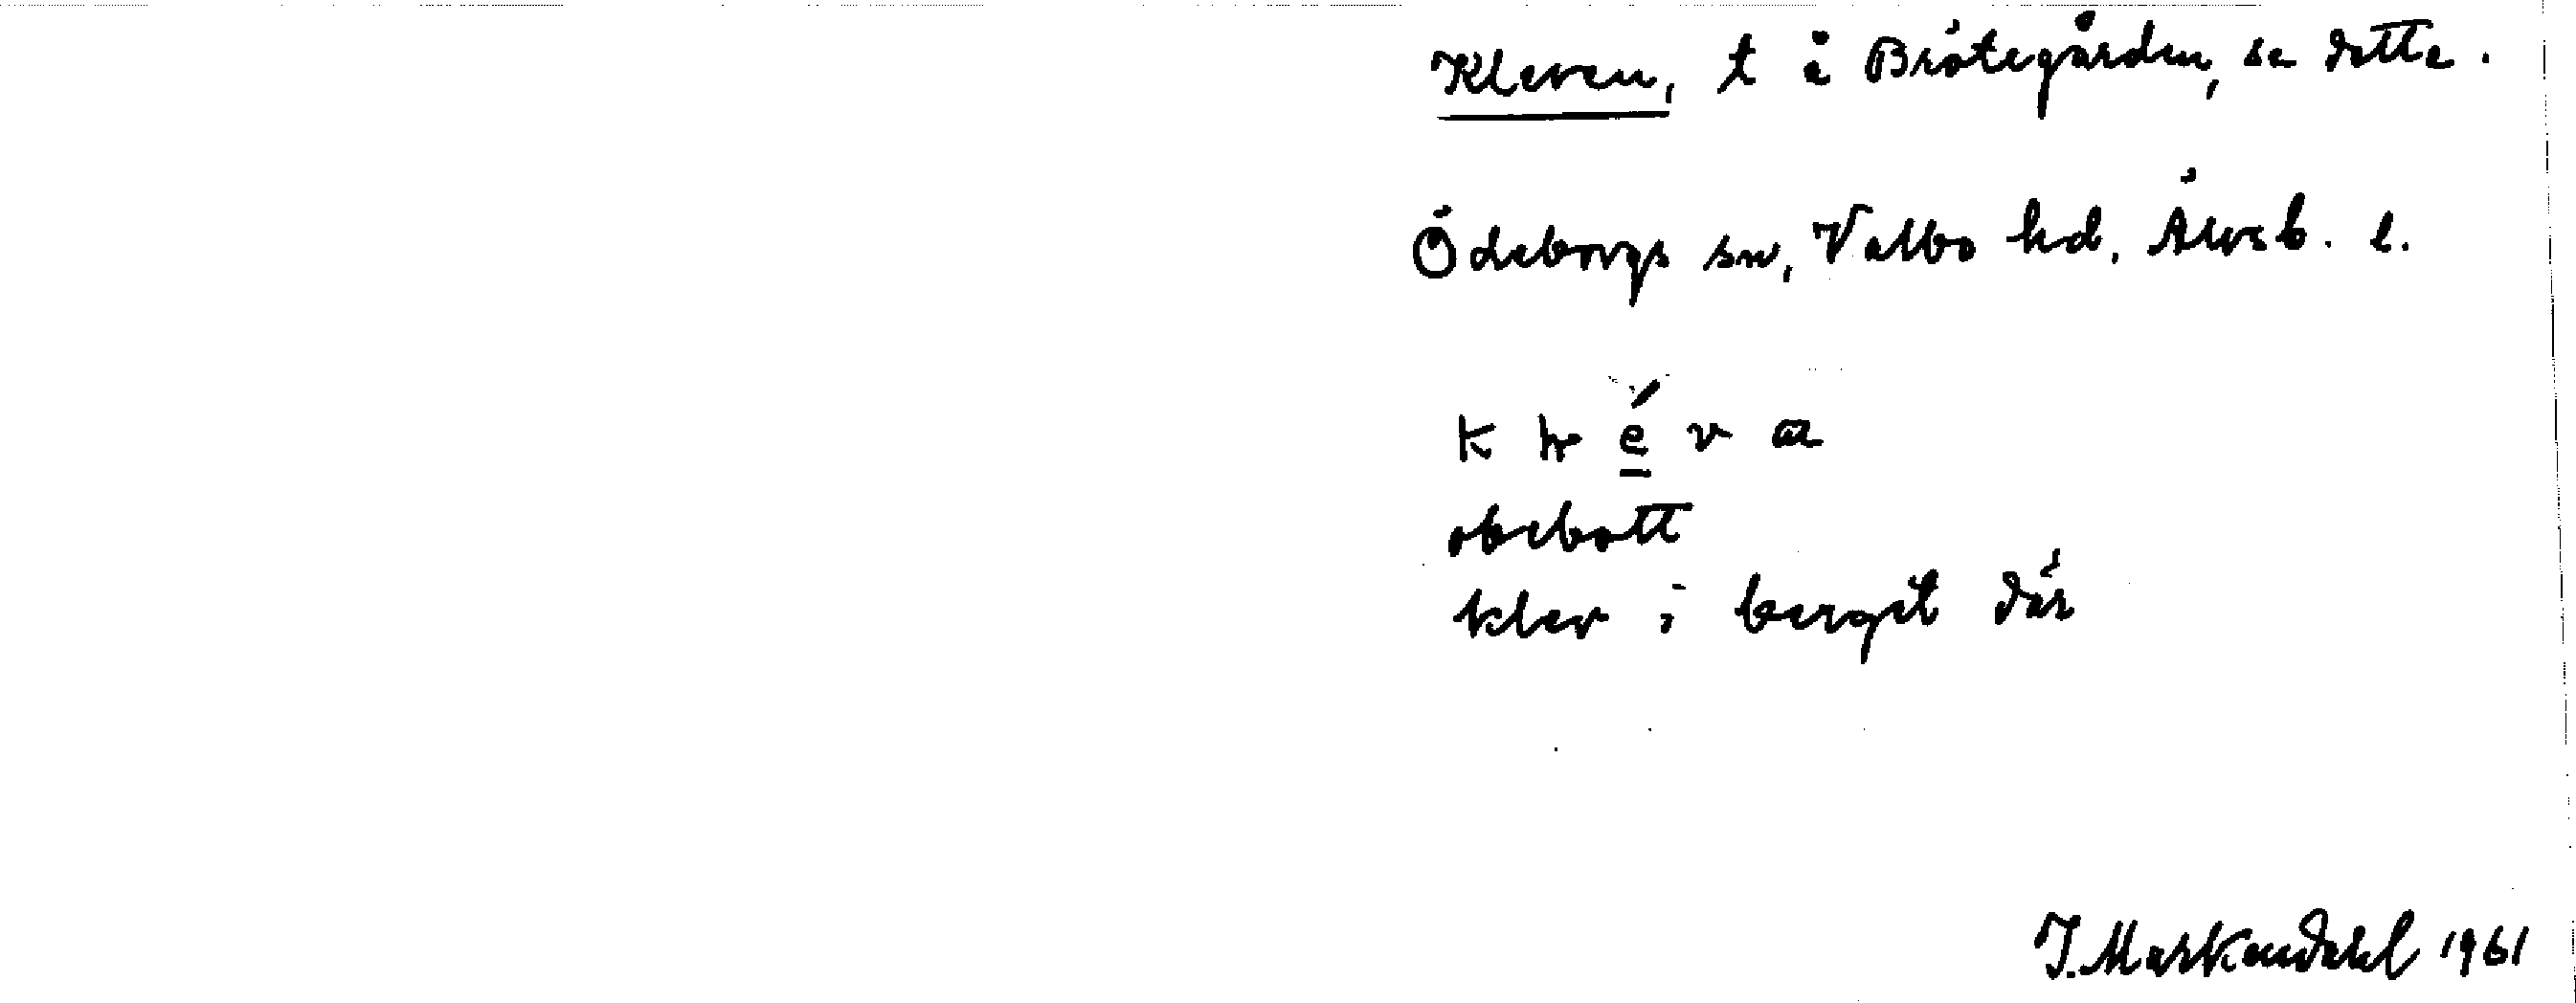 Kleven, t å Brötegården, se detta.
Ödeborgs sn, Valbo hd, Älvsb. l.
obebott
klev i berget där
J. Markendahl 1961